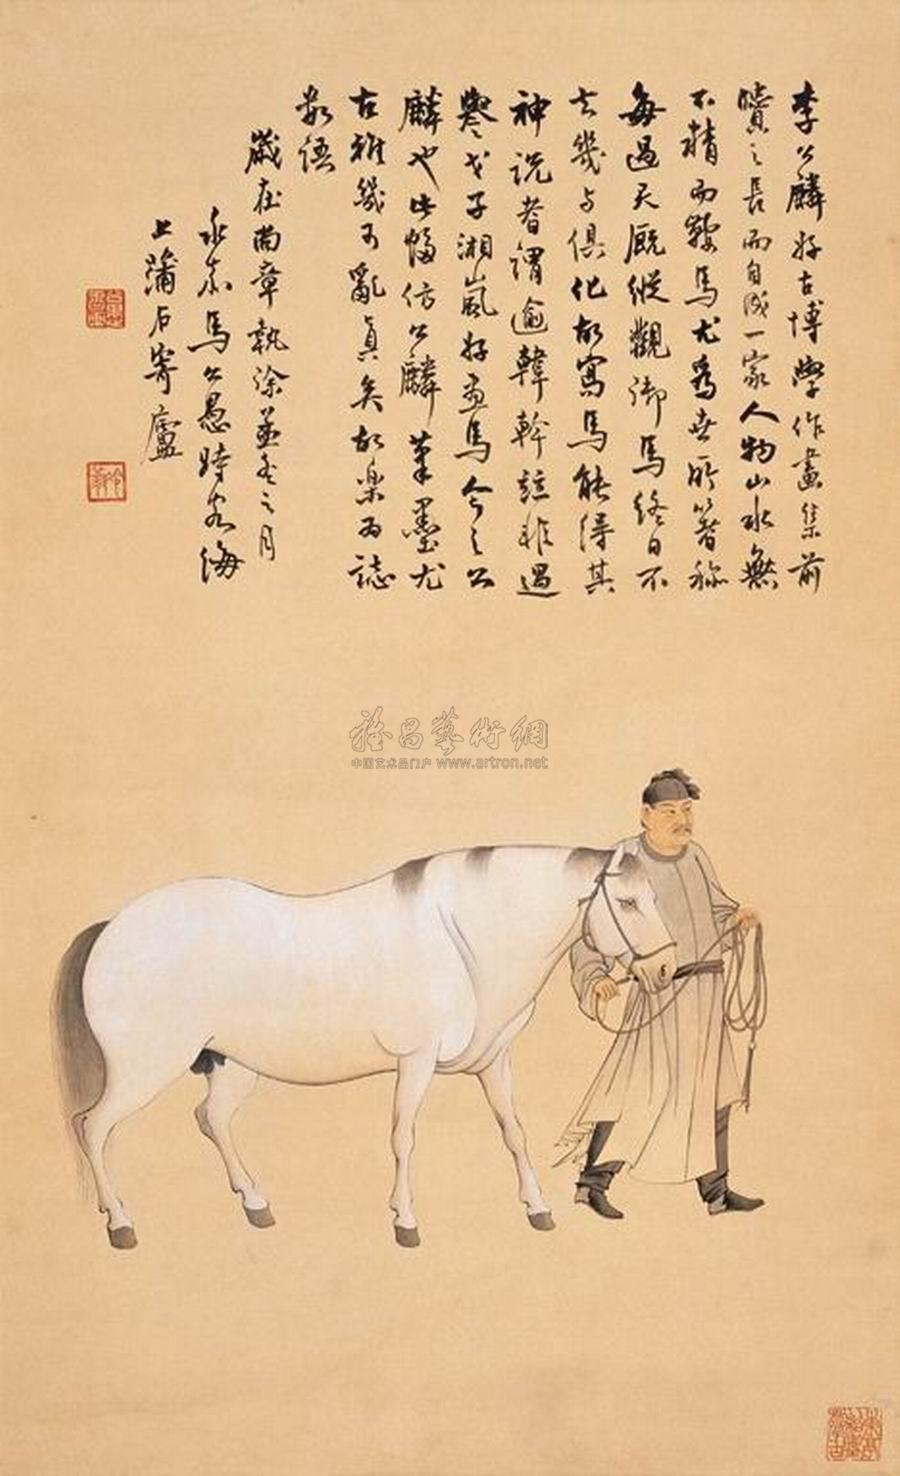 李公麟好古博學作畫集前
賢之長而自成一家人物山水無
不精而鞍馬尤為世所著称
每過天厩縱觀御馬終日不
去幾与俱化故寫馬能得其
神説者謂逾韓幹詎非過
譽戈子湘嵐好画馬今之公
麟也此幅仿公麟筆墨尤
古雅幾可亂真矣故樂為誌
數語
歲在尚章執徐孟冬之月
永嘉馬公愚時客海
上蒲石寄廬
雅昌藝術網
中国艺术品门户 www.artron.net